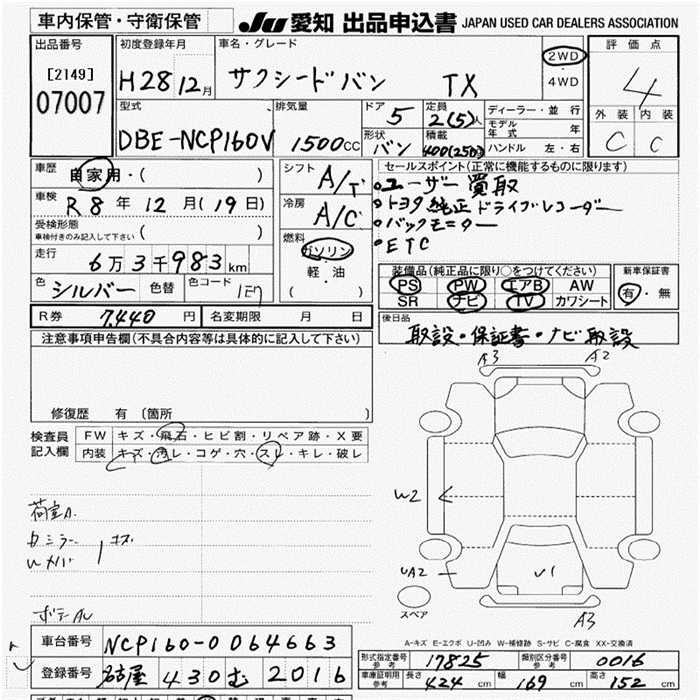 車内保管・守衛保管
JU 愛知 出品申込書 JAPAN USED CAR DEALERS ASSOCIATION
出品番号 [2149] 07007
初度登録年月 H28 12月
車名・グレード サクシードバン TX
2WD
4WD
評価点 4
外装 C 内装 C
型式 DBE-NCP160V
排気量 1500cc
ドア 5
定員 2(5)人
形状 バン
積載 400(250)
ディーラー・並行
モデル年式 年
ハンドル 左・右
車歴 自家用・( )
車検 R8年12月(19日)
受検形態 車検付きのみ記入して下さい ( )
走行 6万3千983km
色 シルバー 色替 色コード 1E7
シフト A/T
冷房 A/C
燃料 ガソリン
軽・油
( )
セールスポイント(正常に機能するものに限ります)
ユーザー買取
トヨタ純正ドライブレコーダー
バックモニター
ETC
装備品(純正品に限り○をつけてください)
PS PW エアB AW
SR ナビ TV カワシート
新車保証書
有・無
R券 7,440円 名変期限 月 日
後日品
取説・保証書・ナビ取説
注意事項申告欄(不具合内容等は具体的に記入して下さい)
修復歴 有 〔箇所
検査員記入欄
FW キズ・飛石・ヒビ割・リペア跡・X要
内装 キズ・汚レ・コゲ・穴・スレ・キレ・破レ
荷室A
カミラー キズ
A3 A2
W2
UA2
U1
A3
スペア
A-キズ E-エクボ U-凹み W-補修跡 S-サビ C-腐食 XX-交換済
車台番号 NCP160-0064663
登録番号 名古屋 430 む 2016
形式指定番号 参考 17825 類別区分番号 参考 0016
車庫証明用 参考 長さ 424cm 幅 169cm 高さ 152cm